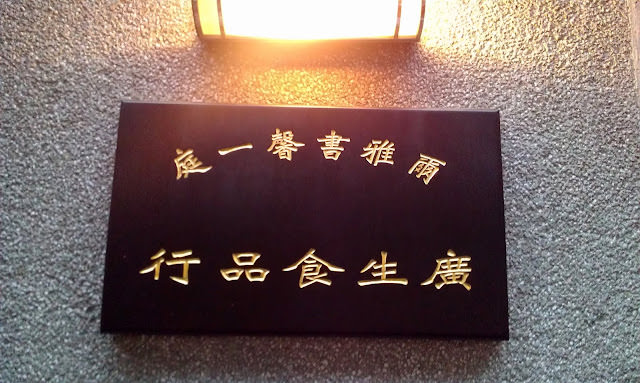 雨雅書馨一庭
廣生食品行